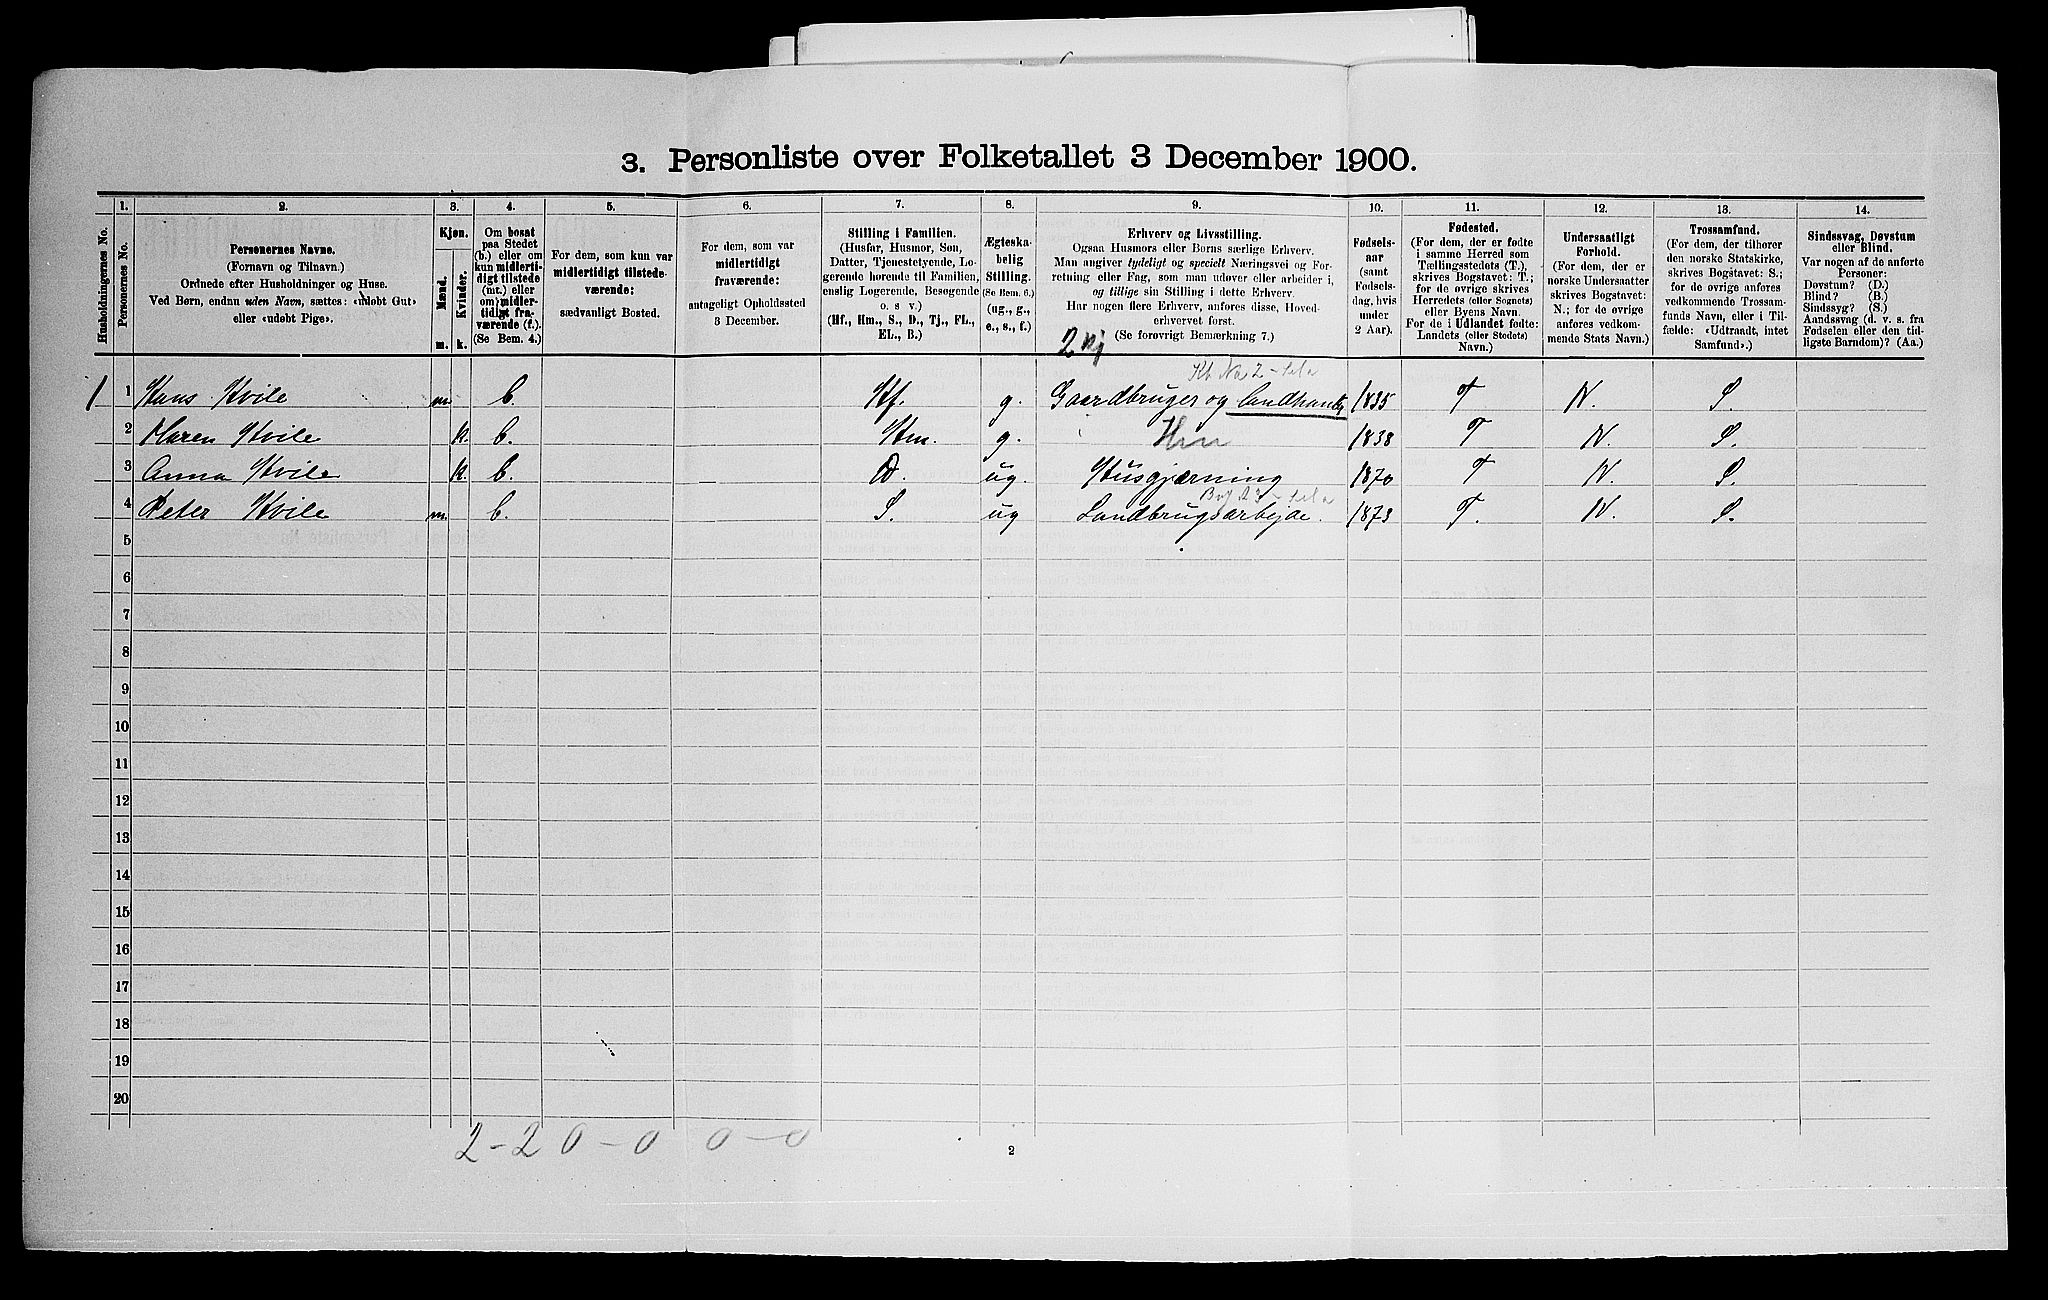 3. Personliste over Folketallet 3 December 1900.
1. 2. 3. 4. 5. 6. 7. 8. 9. 10. 11. 12. 13. 14.
Husholdningernes No.
Personernes No.
Personernes Navne.
(Fornavn og Tilnavn.)
Ordnede efter Husholdninger og Huse.
Ved Børn, endnu uden Navn, sættes: «udøbt Gut»
eller «udøbt Pige».
Kjøn.
Mænd.
Kvinder.
m. k.
Om bosat
paa Stedet
(b.) eller om
kun midlerti-
digt tilstede
(mt.) eller
om midler-
tidigt fra-
værende (f.).
(Se Bem. 4.)
For dem, som kun var
midlertidigt tilstede-
værende:
sædvanligt Bosted.
For dem, som var
midlertidigt
fraværende:
antageligt Opholdssted
3 December.
Stilling i Familien.
(Husfar, Husmor, Søn,
Datter, Tjenestetyende, Lo-
gerende hørende til Familien,
enslig Logerende, Besøgende
o. s. v.)
(Hf., Hm., S., D., Tj., FL.,
EL., B.)
Ægteska-
belig
Stilling.
(Se Bem. 6.)
(ug., g.,
e., s., f.)
Erhverv og Livsstilling.
Ogsaa Husmors eller Børns særlige Erhverv.
Man angiver tydeligt og specielt Næringsvei og For-
retning eller Fag, som man udøver eller arbeider i,
og tillige sin Stilling i dette Erhverv.
Har nogen flere Erhverv, anføres disse, Hoved-
erhvervet først.
(Se forøvrigt Bemærkning 7.)
2 kj
Fødsels-
aar
(samt
Fødsels-
dag, hvis
under
2 Aar).
Fødested.
(For dem, der er fødte
i samme Herred som
Tællingsstedets (T.),
skrives Bogstavet: T.;
for de øvrige skrives
Herredets (eller Sognets)
eller Byens Navn.
For de i Udlandet fødte:
Landets (eller Stedets)
Navn.)
Undersaatligt
Forhold.
(For dem, der er
norske Undersaatter
skrives Bogstavet:
N.; for de øvrige
anføres vedkom-
mende Stats Navn.)
Trossamfund.
(For dem, der tilhører
den norske Statskirke,
skrives Bogstavet: S.;
for de øvrige anføres
vedkommende Trossam-
funds Navn, eller i Til-
fælde: «Udtraadt, intet
Samfund».)
Sindssvag, Døvstum
eller Blind.
Var nogen af de anførte
Personer:
Døvstum? (D.)
Blind? (B.)
Sindssyg? (S.)
Aandssvag (d. v. s. fra
Fødselen eller den tid-
ligste Barndom)? (Aa.)
1 1 Hans Hvile m. b. Hf. g. Gaardbruger og landhandl 1835 T N. S.
2 Maren Hvile k. b. Hm. g. Hm 1838 T N. S.
3 Anna Hvile k. b. D. ug. Husgjærning 1870 T N. S.
4 Peter Hvile m. b. S. ug Landbrugsarbejde. 1873 T. N. S.
5
6
7
8
9
10
11
12
13
14
15
16
17
18
19
20
2-2 0-0 0-0
2